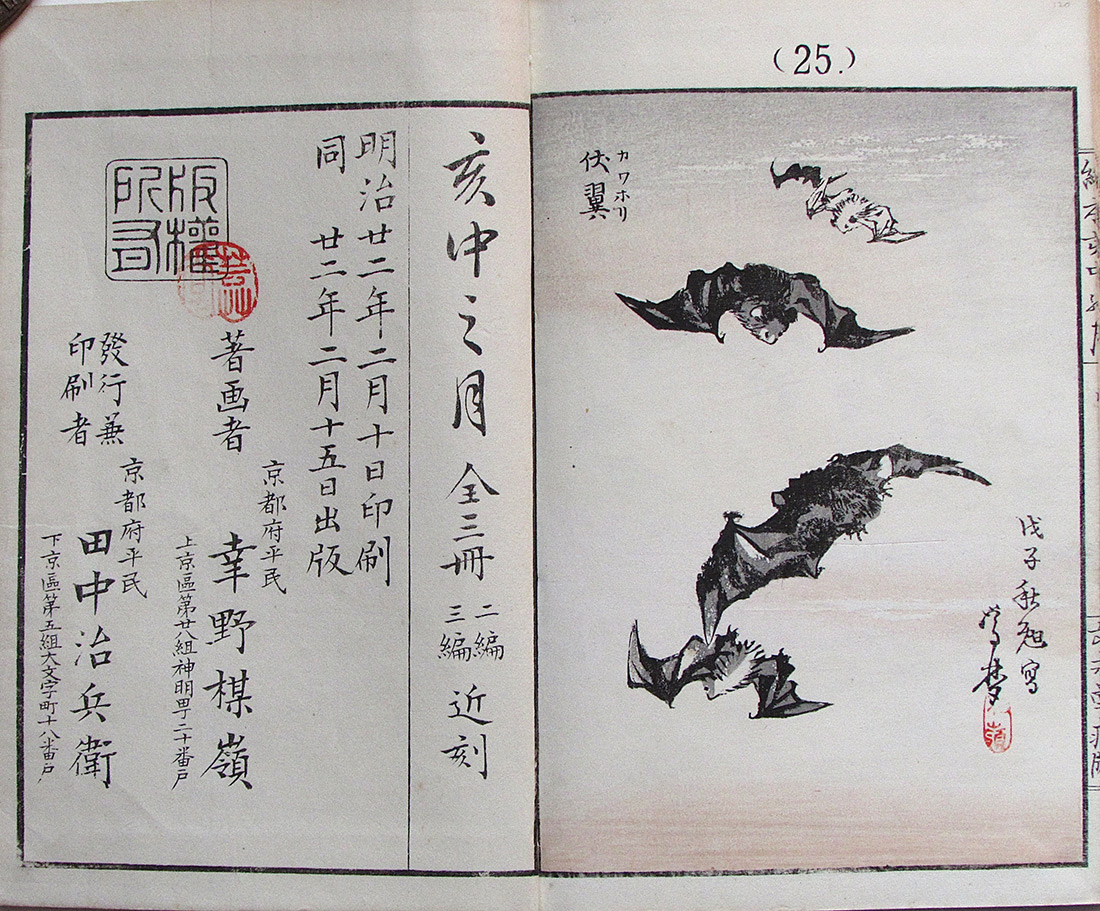 (25.)
カワホリ
伏翼
戊子秋旭寫
亥中之月 全三冊 二編 三編 近刻
明治廿二年二月十日印刷
同 廿二年二月十五日出版
版權
所有
著画者
京都府平民
幸野楳嶺
上京區第廿八組神明町二十番戸
發行兼
印刷者
京都府平民
田中治兵衛
下京區第五組大文字町十八番戸